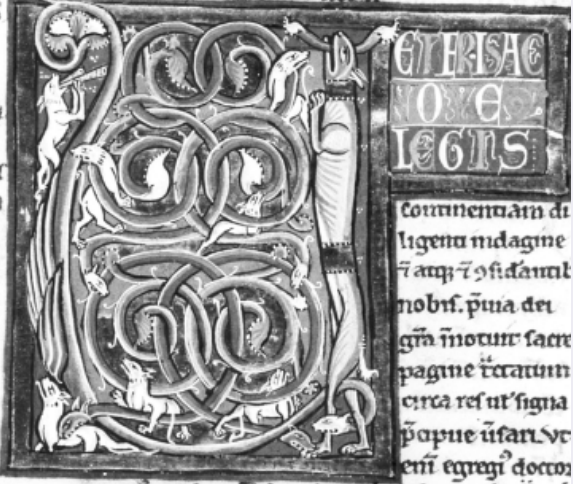 VETERIS AC
NOVE
LEGIS
continentiam di
ligenti indagine
⁊̄ atq; ⁊̄ ꝯsid̄antib
nobis. p̄uia dei
gr̄a īnotuit sacre
pagine t̄ctatum
circa res ut' signa
p̄cipue ūsari. Vt
eni̅ egregiꝰ doctor